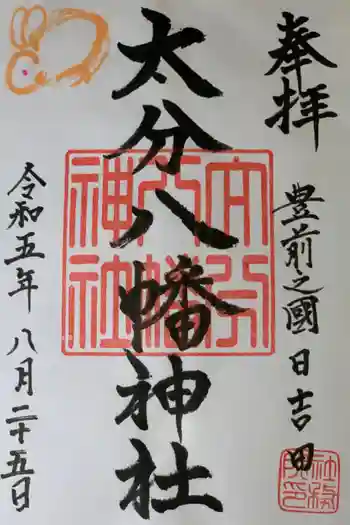 奉拝
豊前之國日吉田
太分八幡神社
大分八幡神社
令和五年八月二十五日
社務所印